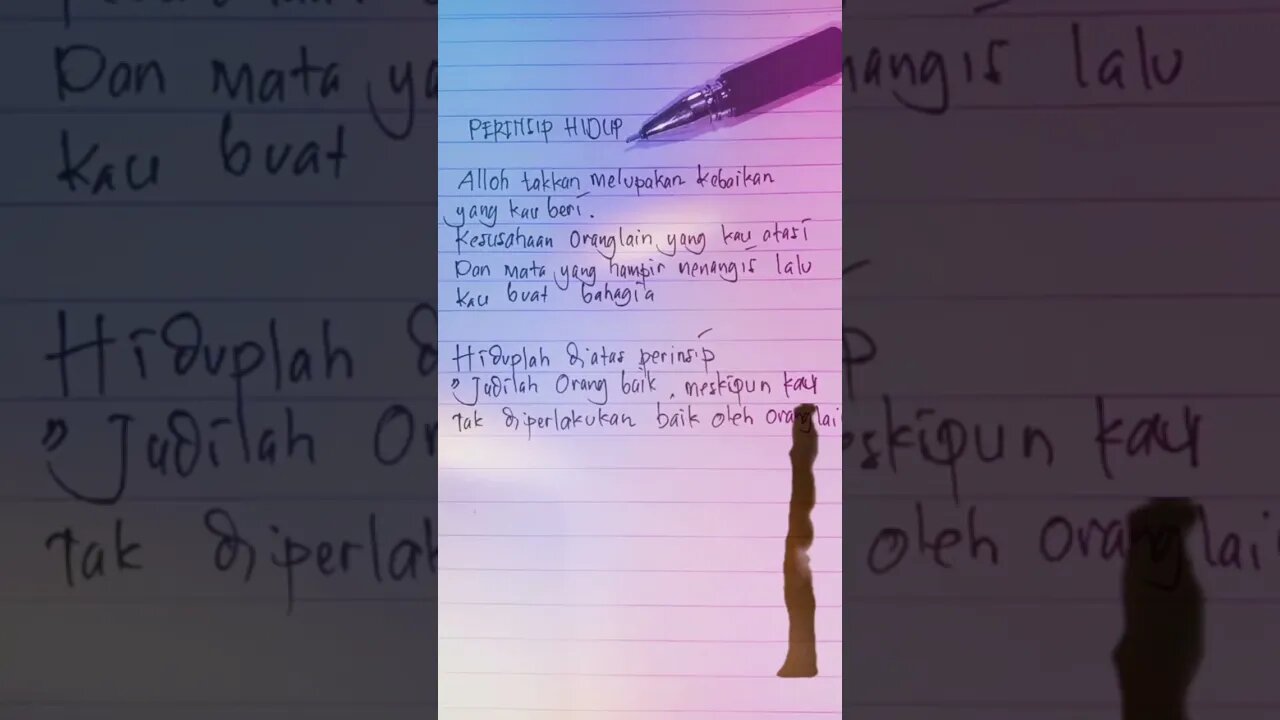 PERINSIP HIDUP
Alloh takkan melupakan kebaikan
yang kau beri.
Kesusahaan Oranglain yang kau atasi
Dan mata yang hampir menangis lalu
kau buat bahagia
Hiduplah diatas perinsip
" Jadilah Orang baik, meskipun kau
tak diperlakukan baik oleh Oranglai